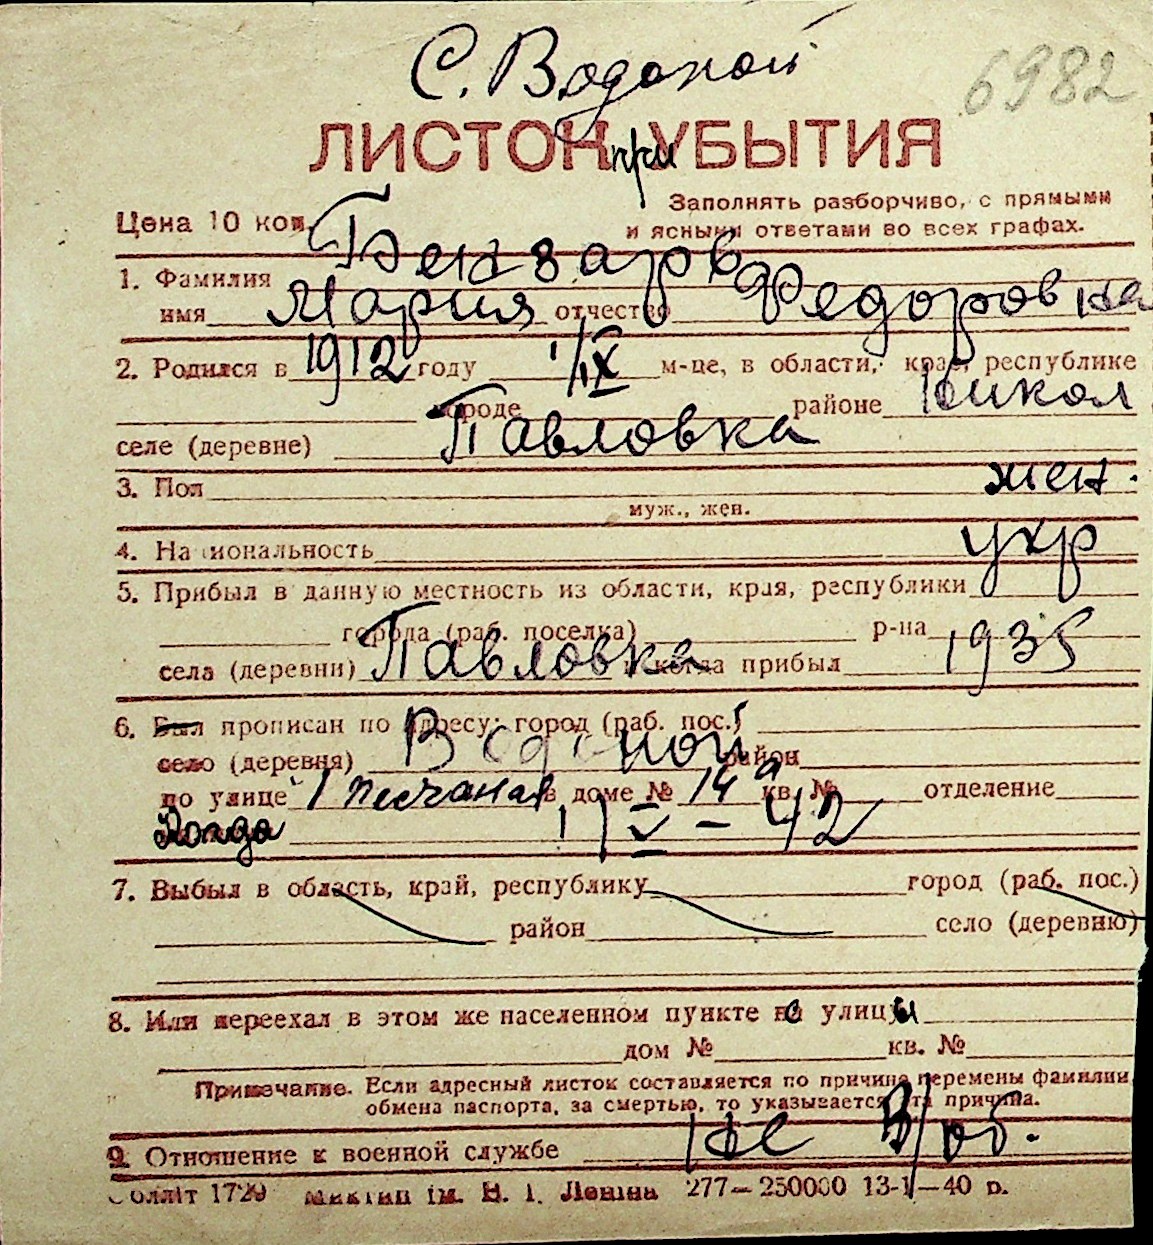 С. Водопой
6982
ЛИСТОК при УБЫТИЯ
Цена 10 коп.
Заполнять разборчиво, с прямыми
и ясными ответами во всех графах.
1. Фамилия Бензарь
имя Мария отчество Федоровна
2. Родился в 1912 году 1/IX м-це, в области, крае, республике
городе районе Никол
селе (деревне) Павловка
3. Пол жен.
муж., жен.
4. Национальность укр
5. Прибыл в данную местность из области, края, республики
города (раб. поселка) р-на
села (деревни) Павловка и когда прибыл 1935
6. Был прописан по адресу: город (раб. пос.)
село (деревня) Водопой район
по улице 1 Песчаная в доме № 14а кв. № отделение
Когда 1/V – 42
7. Выбыл в область, край, республику город (раб. пос.)
район село (деревню)
8. Или переехал в этом же населенном пункте с улицы
дом № кв. №
Примечание. Если адресный листок составляется по причине перемены фамилии,
обмена паспорта, за смертью, то указывается эта причина.
9. Отношение к военной службе Не в/об.
Облліт 1729 Миктип ім. В. І. Леніна 277—250000 13-I—40 р.